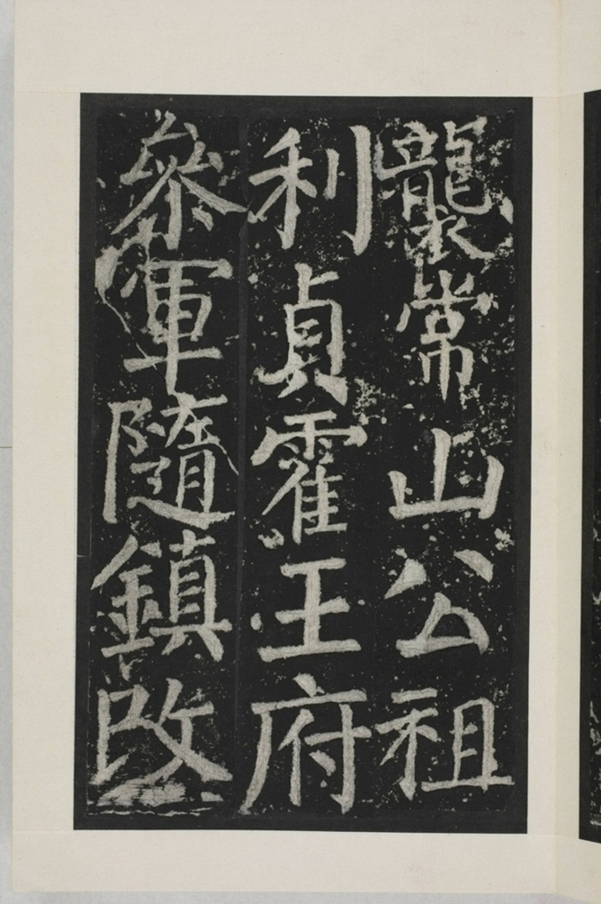 襲常山公祖
利貞霍王府
參軍隨鎮改